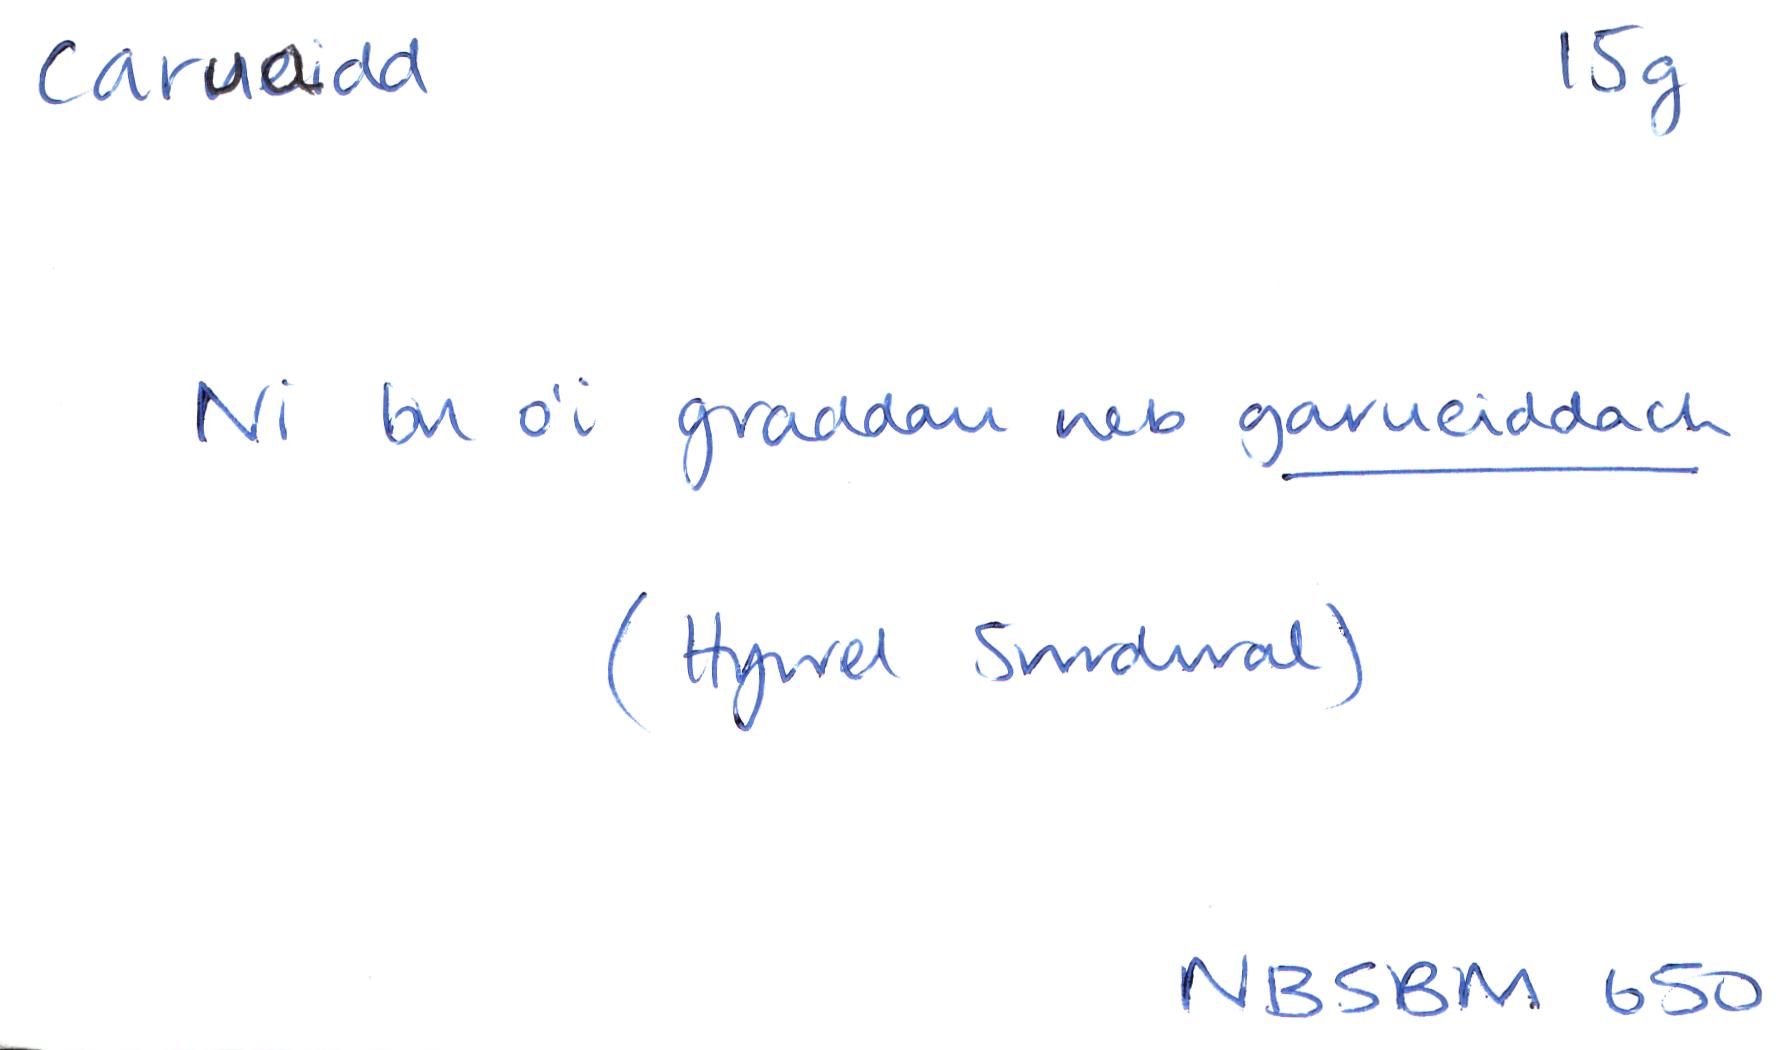 Caruaidd 15g
Ni bu o'i graddau neb garueiddach
(Hywel Swrdwal)
NBSBM 650